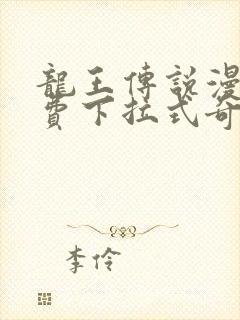 龍王傳說漫
費下拉式奇
李伶